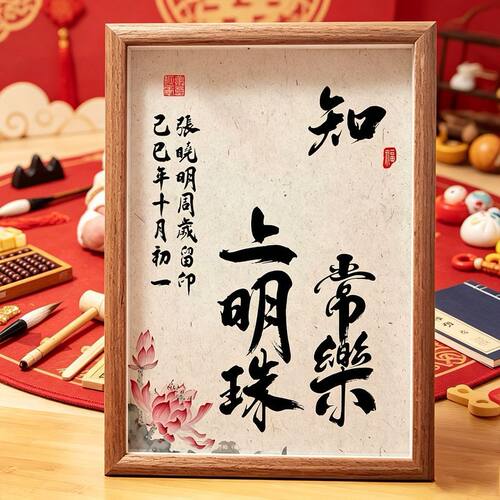 知常樂
上明珠
張曉明周歲留印
己巳年十月初一
福